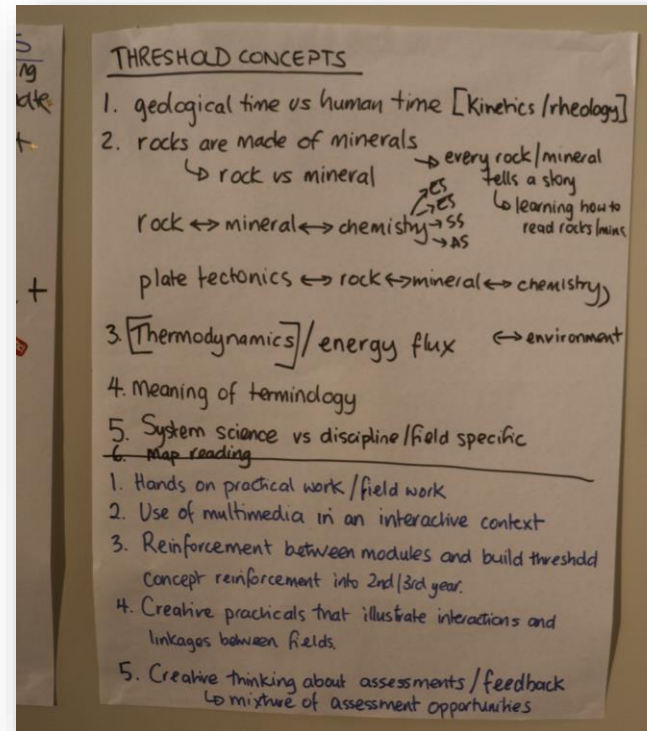 S
ng
ate
+
+
THRESHOLD CONCEPTS
1. geological time vs human time [Kinetics/rheology]
2. rocks are made of minerals
↳ rock vs mineral
→ every rock/mineral
tells a story
↳ learning how to
read rocks/mins
rock ↔ mineral ↔ chemistry → ES
→ ES
→ SS
→ AS
plate tectonics ↔ rock ↔ mineral ↔ chemistry
↔ environment
3. [Thermodynamics] / energy flux
4. Meaning of terminology
5. System science vs discipline/field specific
6. Map reading
1. Hands on practical work/field work
2. Use of multimedia in an interactive context
3. Reinforcement between modules and build threshold
concept reinforcement into 2nd/3rd year.
4. Creative practicals that illustrate interactions and
linkages between fields.
5. Creative thinking about assessments/feedback
↳ mixture of assessment opportunities